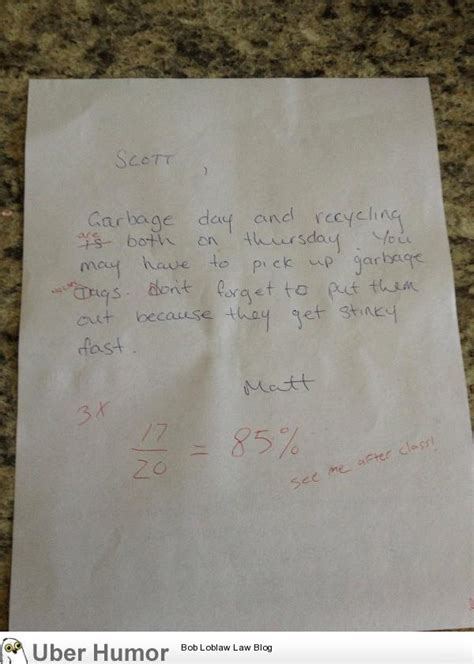 SCOTT,
Garbage day and recycling
are
is both on thursday. You
may have to pick up garbage
bags. dont forget to put them
out because they get stinky
fast.
Matt
3x
17
20 = 85%
see me after class!
Uber Humor
Bob Loblaw Law Blog